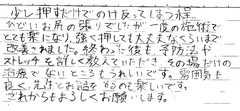 少し押すだけでのけ反ってしまう程
ひどいお尻の張りでしたが一度の施術で
とても楽になり、強く押しても大丈夫なくらいまで
改善されました。終わった後も、予防法や
ストレッチを詳しく教えていただき、その場だけの
治療でないところもうれしいです。雰囲気も
良く、先生とお話をするのも楽しいです。
これからもよろしくお願いします。